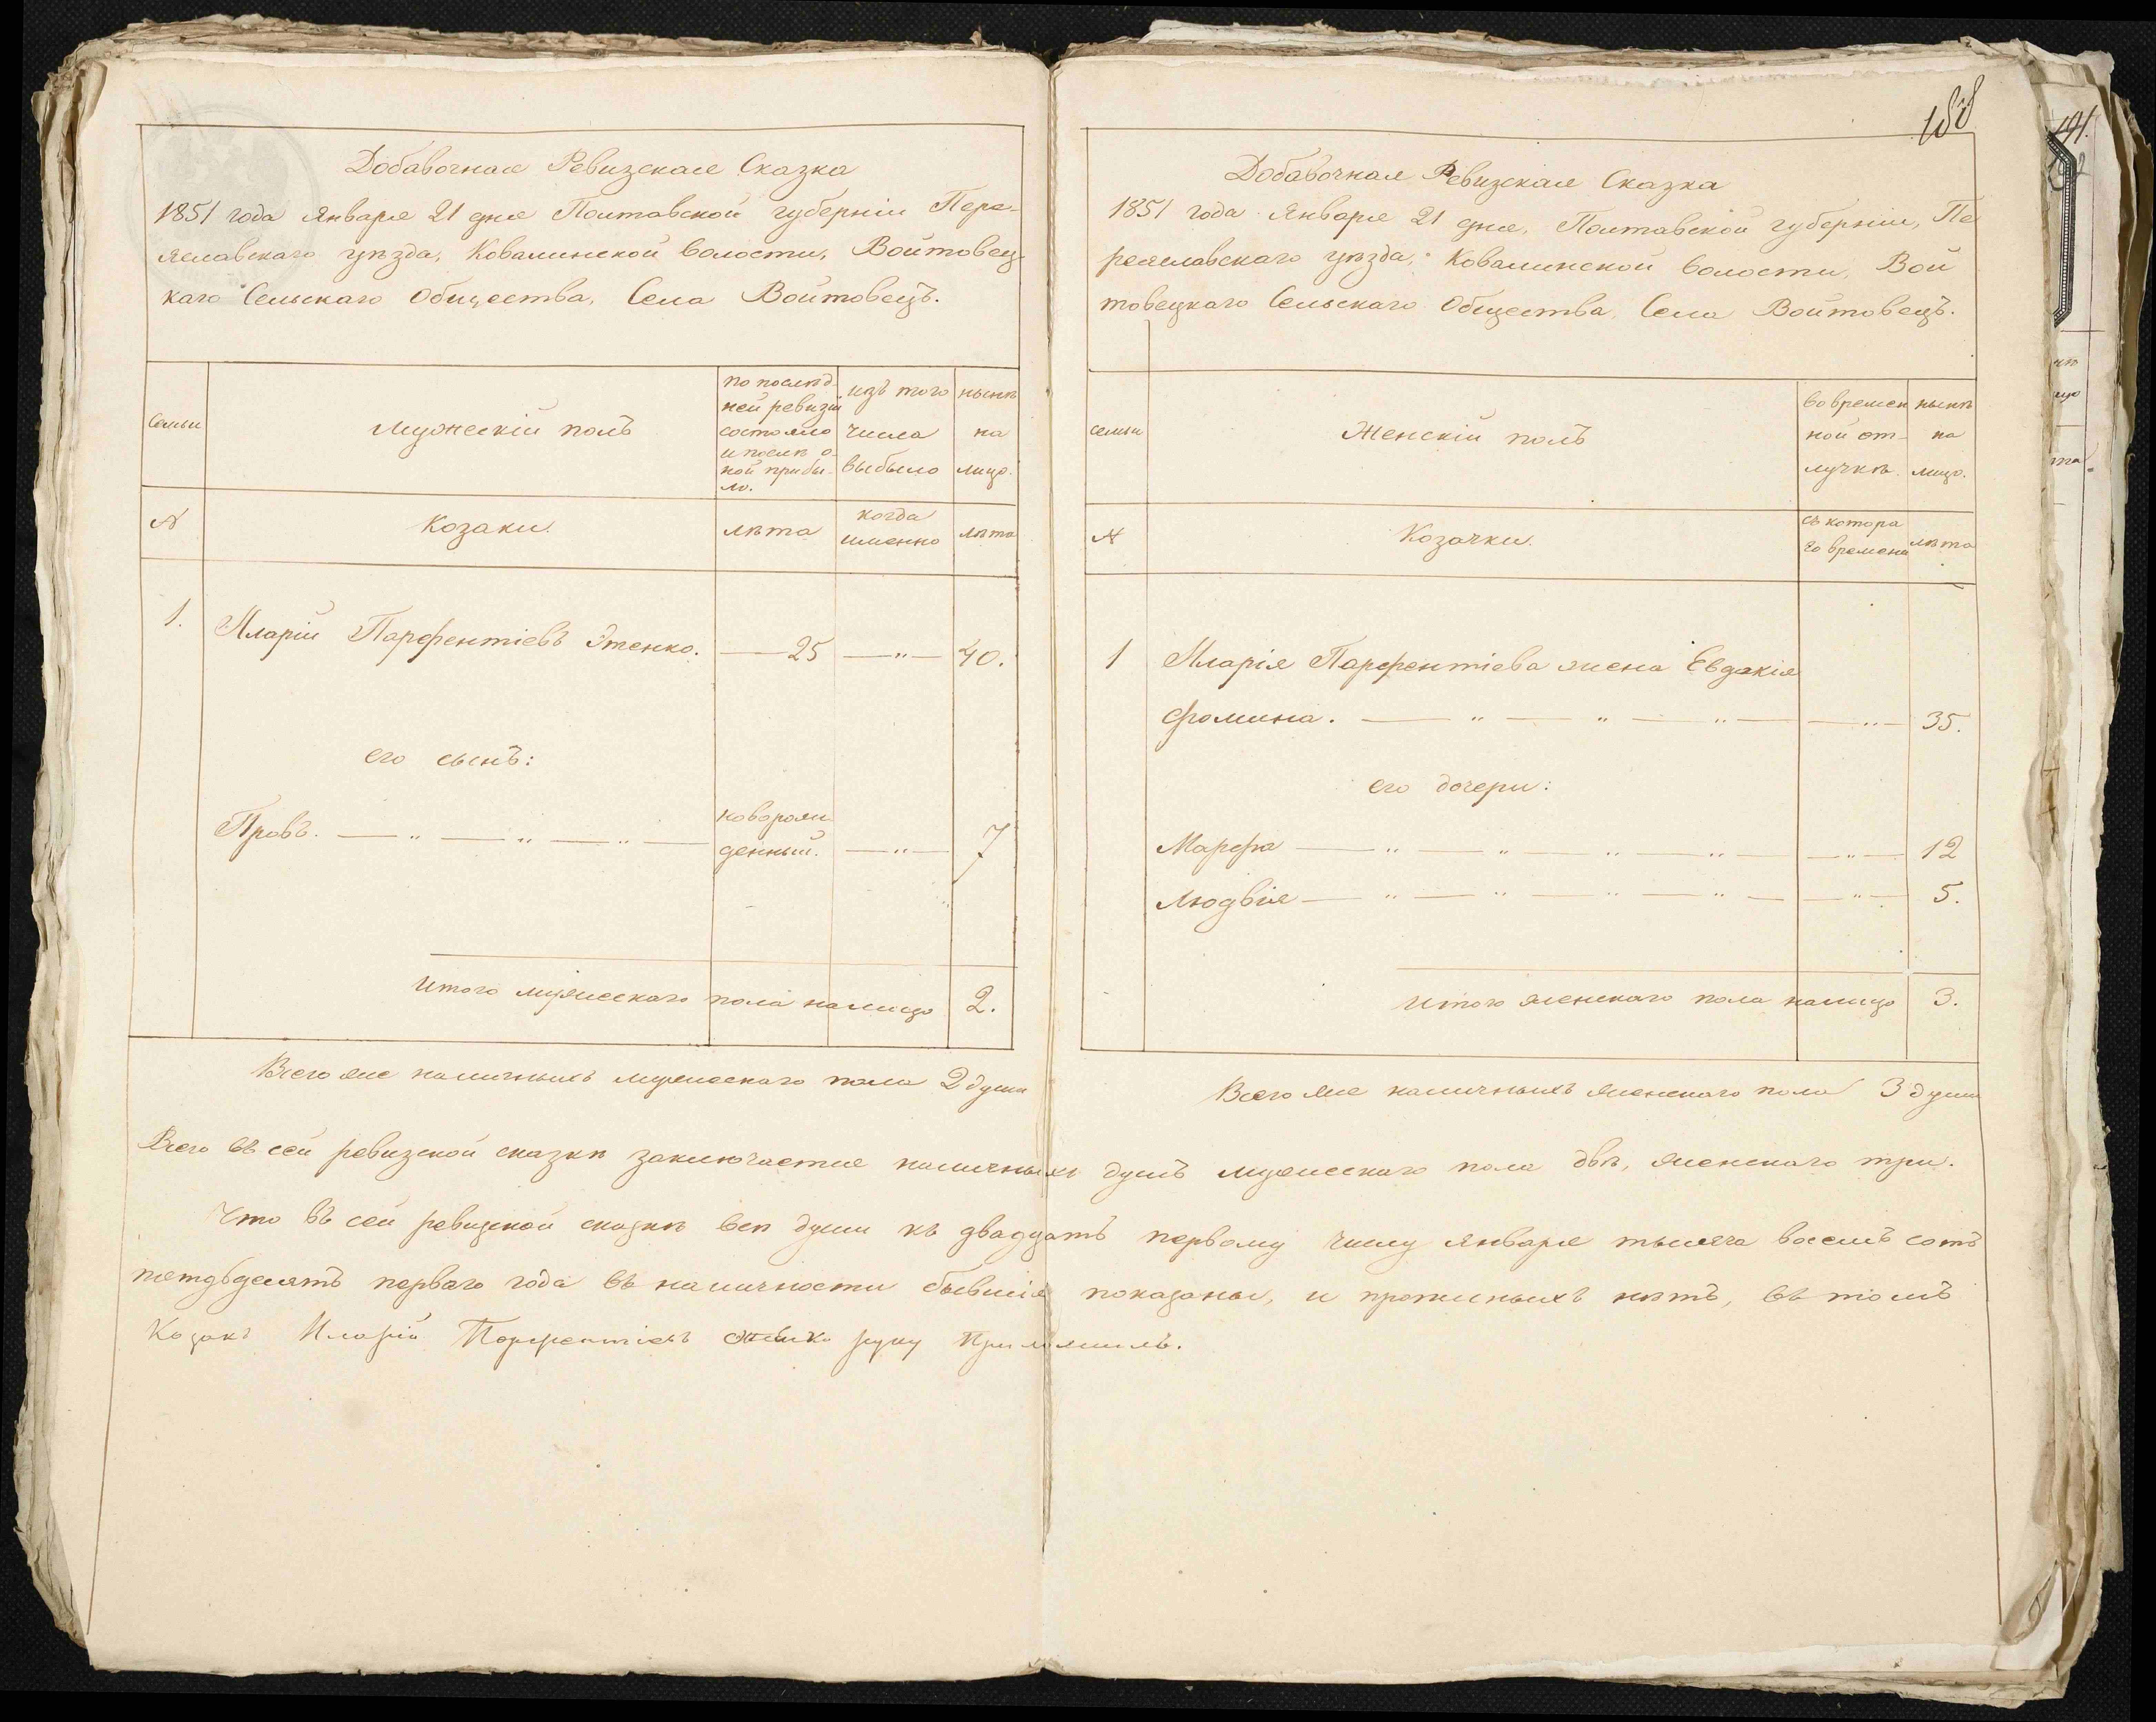 188
Добавочная Ревизская Сказка
1851 года Января 21 дня Полтавской губерніи Пере-
яславскаго уѣзда, Ковалинской волости, Войтовец-
каго Сельскаго Общества, Села Войтовецъ.
Семьи
Мужескій полъ
по послѣд-
ней ревизіи
состояло
и послѣ о-
ной прибы-
ло.
изъ того
числа
выбыло
нынѣ
на
лицо.
№
Козаки.
лѣта
когда
именно
лѣта
1. Иларій Парфентіевъ — 25 — „ — 40.
его сынъ:
Провъ. — „ — „ — „ — новорож-
денный. — „ — 7
Итого мужескаго пола налицо 2.
Всего же наличныхъ мужескаго пола 2 души
Добавочная Ревизская Сказка
1851 года Января 21 дня, Полтавской губерніи, Пе
реяславскаго уѣзда, Ковалинской волости, Вой
товецкаго Сельскаго Общества, Села Войтовецъ.
семьи
Женскій полъ
Во времен
ной от-
лучкѣ.
нынѣ
на
лицо.
№
Козачки.
съ котора
го времени
лѣта
1 Иларія Парфентіева жена Евдокія
Фомина. — „ — „ — „ — — „ — 35.
его дочери:
Марфа — „ — „ — „ — „ — — „ — 12
Людвія — „ — „ — „ — „ — — „ — 5.
Итого женскаго пола налицо 3.
Всего же наличныхъ женскаго пола 3 души
Всего въ сей ревизской сказкѣ заключается наличныхъ душъ мужескаго пола двѣ, женскаго три.
Что въ сей ревизской сказкѣ всѣ души къ двадцать первому числу января тысяча восемъ сотъ
петдѣсятъ перваго года въ наличности бывшія показаны, и прописныхъ нѣтъ, въ томъ
Козакъ Иларій Парфентіевъ руку приложилъ.
191.